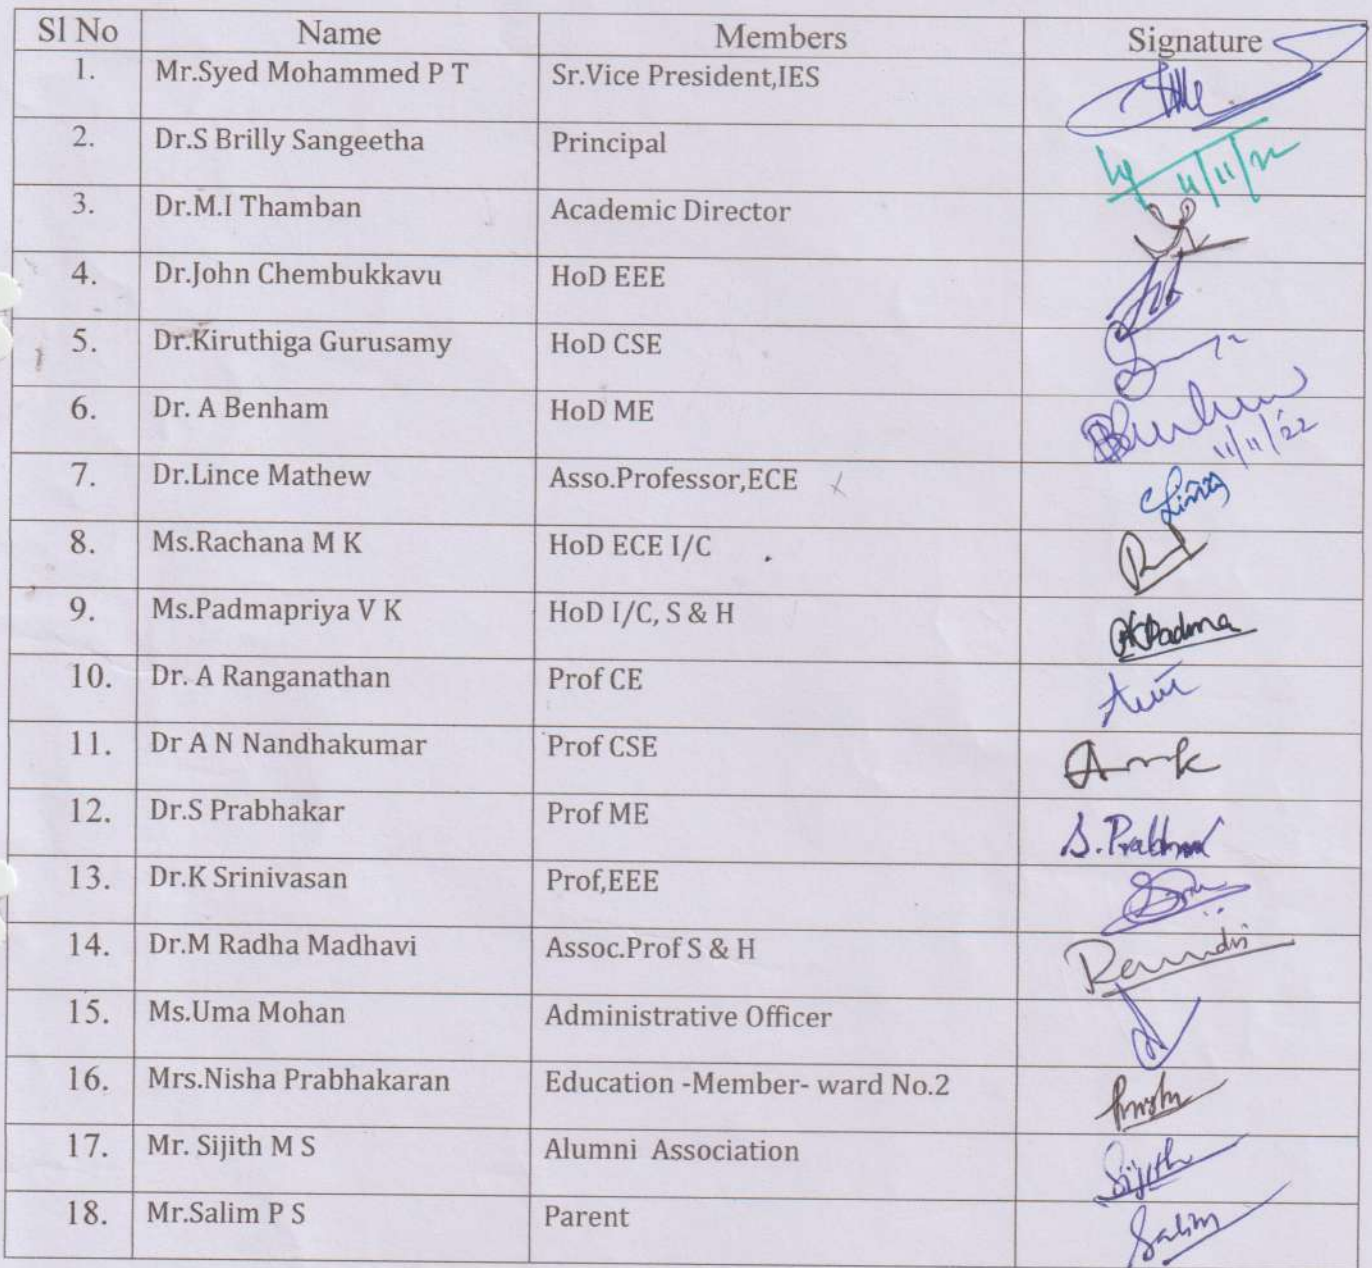 Sl No Name Members Signature
1. Mr.Syed Mohammed P T Sr.Vice President,IES
2. Dr.S Brilly Sangeetha Principal 11/11/22
3. Dr.M.I Thamban Academic Director
4. Dr.John Chembukkavu HoD EEE
5. Dr.Kiruthiga Gurusamy HoD CSE
6. Dr. A Benham HoD ME 11/11/22
7. Dr.Lince Mathew Asso.Professor,ECE
8. Ms.Rachana M K HoD ECE I/C
9. Ms.Padmapriya V K HoD I/C, S & H
10. Dr. A Ranganathan Prof CE
11. Dr A N Nandhakumar Prof CSE
12. Dr.S Prabhakar Prof ME
13. Dr.K Srinivasan Prof,EEE
14. Dr.M Radha Madhavi Assoc.Prof S & H
15. Ms.Uma Mohan Administrative Officer
16. Mrs.Nisha Prabhakaran Education -Member- ward No.2
17. Mr. Sijith M S Alumni Association Sijith
18. Mr.Salim P S Parent Salim